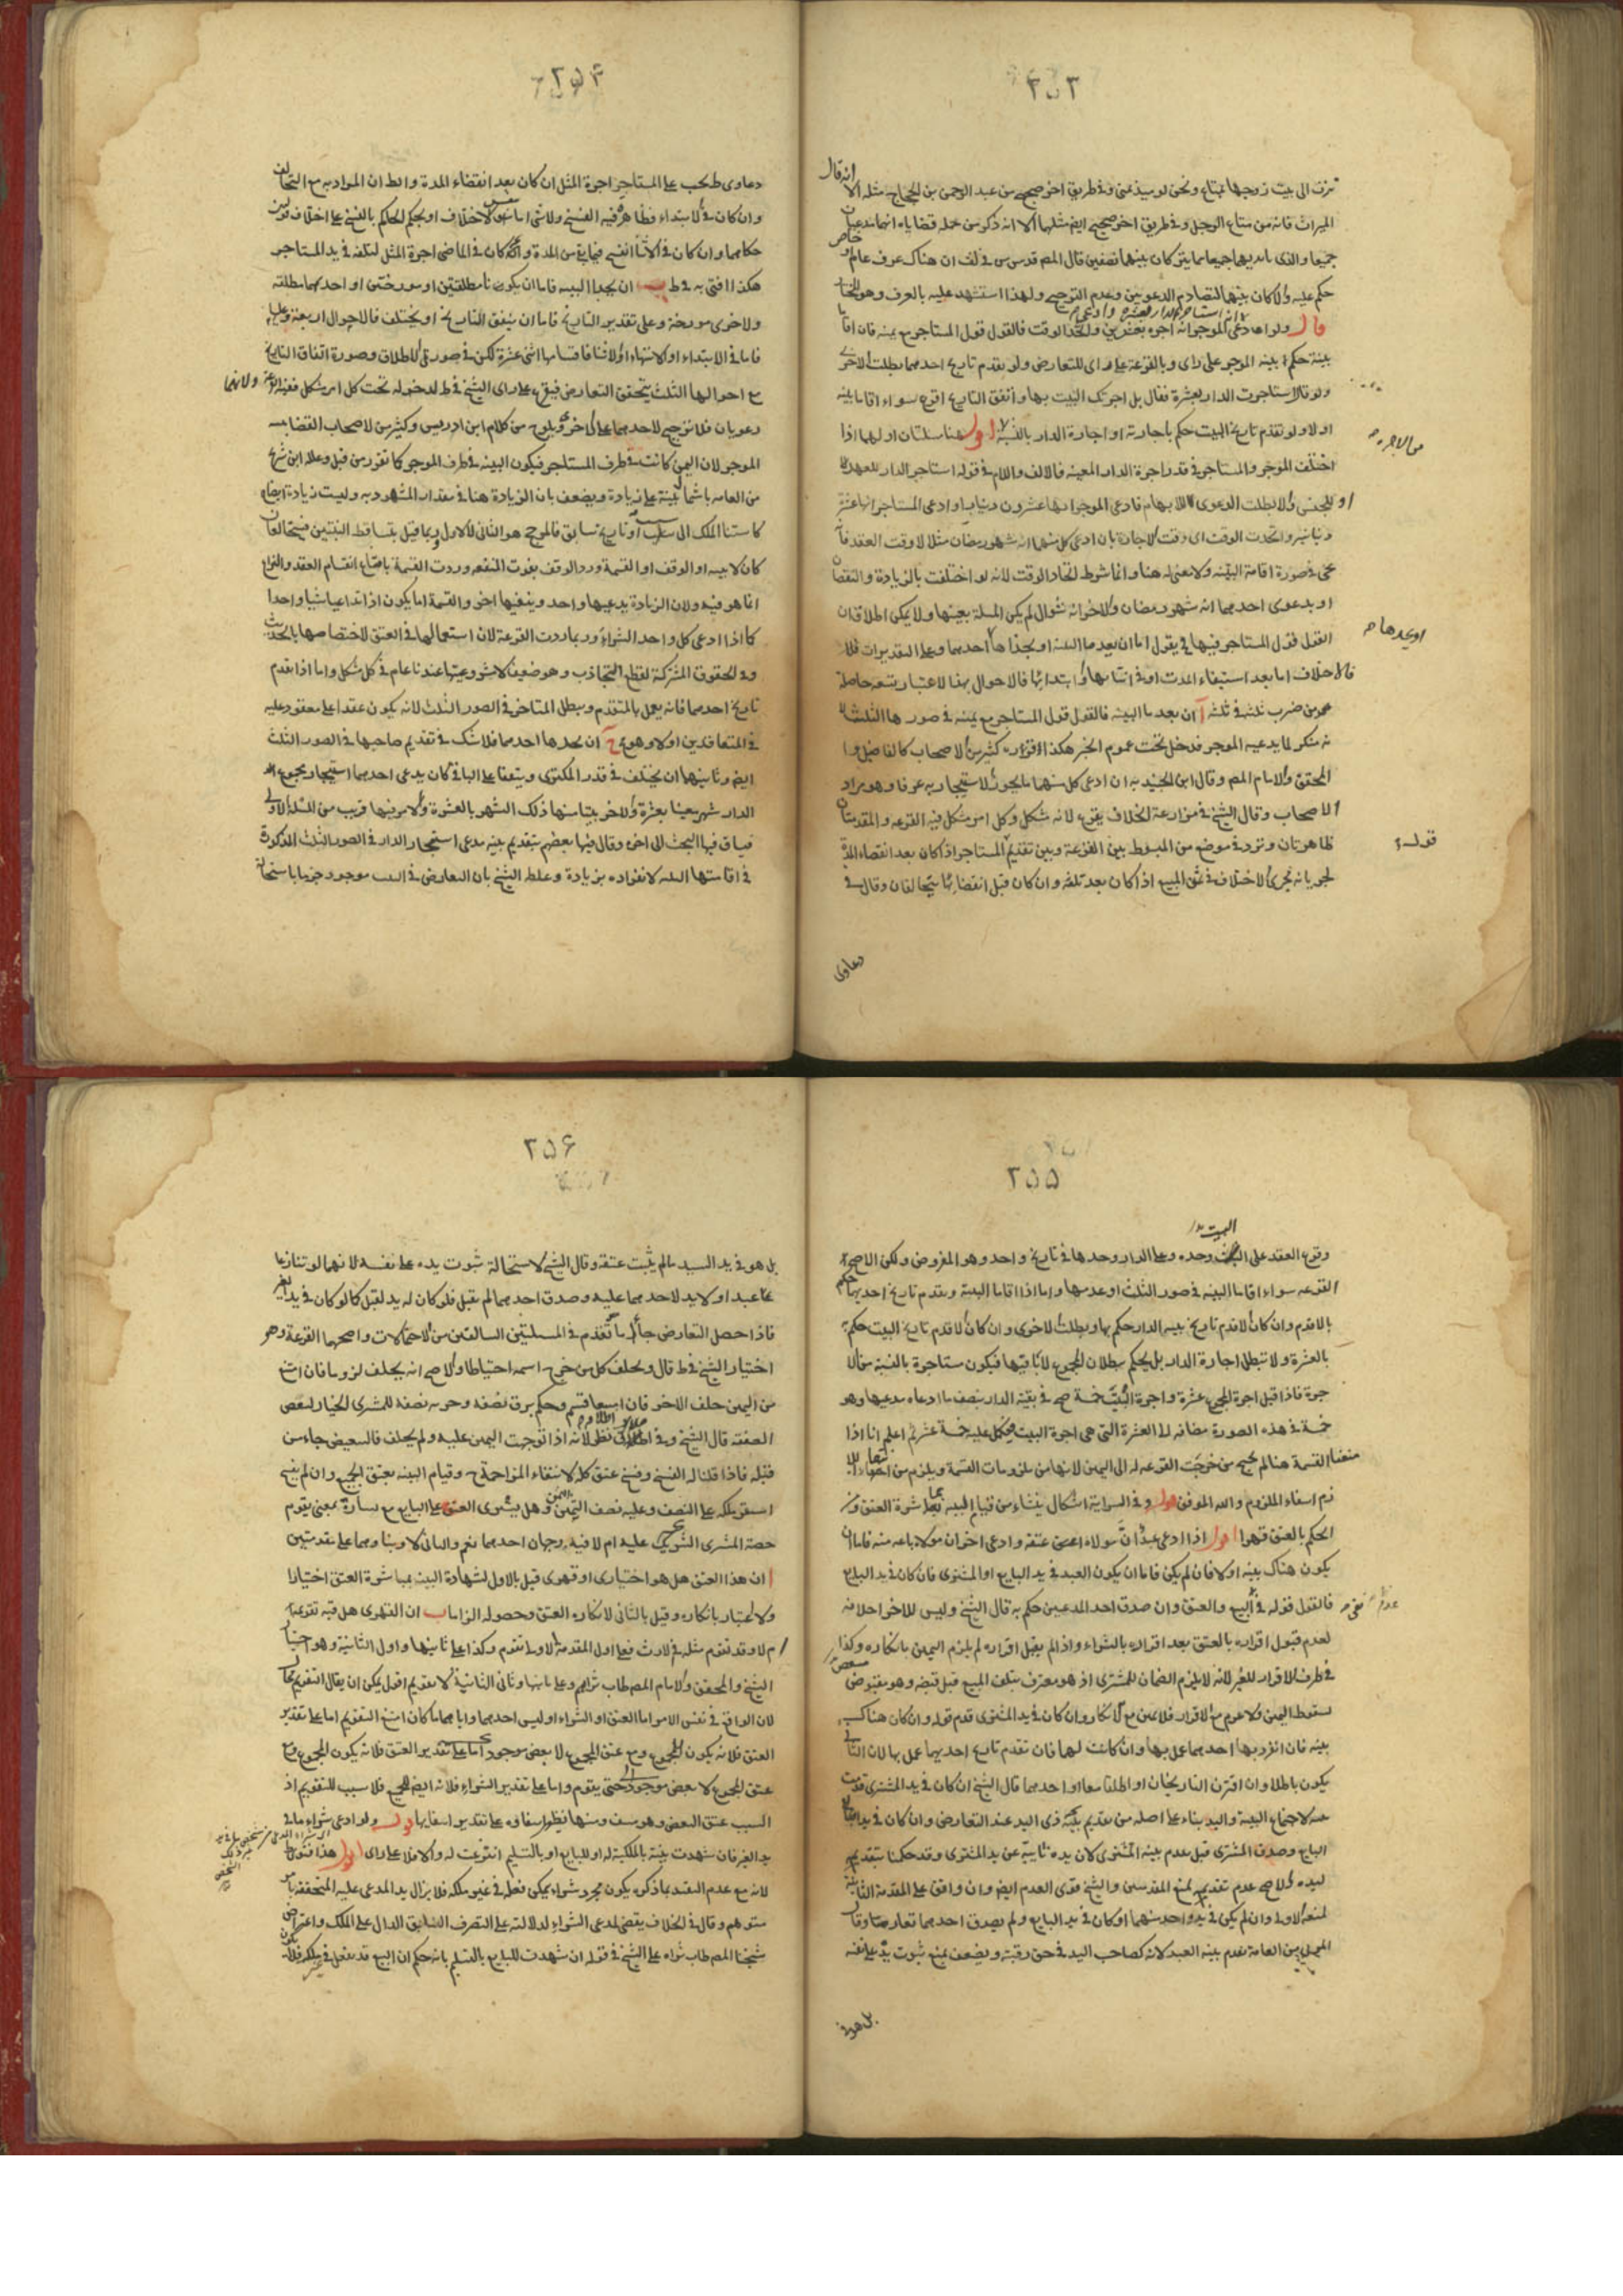 ٢٥٣
تزف الى بيت زوجها بمتاع ونحن لو سئلنا عن وفى طريق اخر صحيح عن عبد الرحمن بن الحجاج مثله الا انه قال
الميراث فانه من متاع الرجل وفى طريق اخر صحيح ايضا مثلهما الا انه ذكر من جملة قضاياه انهما
جميعا والذى بايديهما جميعا كان بينهما نصفين قال المصـ قدس سره فى لف ان هناك عرف عام او خاص
حكم عليه والا كان بينهما لتصادم الدعويين وعدم الترجيح ولهذا استشهد عليه بالعرف وهو المختار
قال ولو ادعى انه استاجر الدار بعشرة وادعى الموجر انه اجره بعشرين واتحد الوقت فالقول قول المستاجر مع يمينه فان اقاما
بينة حكم بينة الموجر على راى وبالقرعة على راى للتعارض ولو تقدم تاريخ احدهما بطلت الاخرى
ولو قال استاجرت الدار بعشرة فقال بل اجرتك البيت بها واتفق التاريخ اقرع سواء اقاما بينة
او لا ولو تقدم تاريخ البيت حكم باجارته او اجارة الدار بالنسبة اقول هنا مسئلتان اوليهما اذا
من الاجرة
اختلف الموجر والمستاجر فى قدر اجرة الدار المعينة فالالف واللام فى قوله استاجر الدار للعهد
او للجنس والا بطلت الدعوى للابهام فادعى الموجر انها عشرون دينارا وادعى المستاجر انها عشرة
دنانير واتحدت الوقت اى وقت الاجارة بان ادعى كل منهما انه شهر رمضان مثلا لا وقت العقد
فى صورة اقامة البينة ولا معنى له هنا وانما شرط اتحاد الوقت لانه لو اختلفت بالزيادة والنقصان
او بدعوى احدهما انه شهر رمضان والاخر انه شوال لم يكن المسئلة بعينها ولا يمكن اطلاق ان
القول قول المستاجر فيها
فالاختلاف اما بعد استيفاء المدة او فى اثنائها او ابتدائها فالاحوال بهذا الاعتبار تسعة حاصلة
من ضرب ثلثة فى ثلثة آ ان يعدما البينة فالقول قول المستاجر مع يمينه فى صورها الثلث
نه منكر لما يدعيه الموجر فدخل تحت عموم الخبر هكذا افتى به كثير من الاصحاب كالفاضل
المحقق والامام المصـ وقال ابن الجنيد به ان ادعى كل منهما ما يجوز الاستيجار به عرفا وهو مراد
الاصحاب وقال الشيخ فى مزارعة الخلاف يقرع لانه مشكل وكل امر مشكل فيه القرعة والمقدمتان
قوله
ظاهرتان وتردد فى موضع من المبسوط بين القرعة وبين تقديم المستاجر اذا كان بعد انقضاء المدة
لجريانه مجرى الاختلاف فى ثمن المبيع اذا كان بعد تلفه وان كان قبل انقضائها يتحالفان وقال فى
دعاوى
٢٥٤
دعاوى ط يجب على المستاجر اجرة المثل ان كان بعد انقضاء المدة والظ ان المراد به مع التحالف
وان كان فى الابتداء فظاهره فيه الفسخ ولا شئ اما بنفس الاختلاف او بحكم الحاكم بالفسخ على اختلاف قولين
حكاهما وان كان فى الاثناء انفسخ فيما بقى من المدة وكان فى الماضى اجرة المثل لتلفه فى يد المستاجر
هكذا افتى به فى ط ب ان يجدا البينة فاما ان يكونا مطلقتين او مورختين او احديهما مطلقة
والاخرى مورخة وعلى تقدير التاريخ فاما ان يتفق التاريخ او يختلف فالاحوال اربعة وعليها
فاما فى الابتداء او الانتهاء او الاثناء فاقسامها اثنى عشرة لكن فى صورتى الاطلاق وصورة اتفاق التاريخ
مع احوالها الثلث يتحقق التعارض فيقرع على راى الشيخ فى ط لدخوله تحت كل امر مشكل ففيه القرعة ولانهما
دعويان فلا ترجيح لاحدهما على الاخرى ويلوح من كلام ابن ادريس وكثير من الاصحاب القضاء
الموجر لان اليمين كانت فى طرف المستاجر فيكون البينة فى طرف الموجر كما تقرر من قبل وعلله ابن شريح
من العامة باشمال بينة على زيادة ويضعف بان الزيادة هنا فى مقدار المشهود به وليست زيادة ايضاح
كاستناد الملك الى سبب او تاريخ سابق فالمرجح هو الثانى لا الاول وبما قيل بتساقط البينتين فيتحالفان
انما هو فيه ولان الزيادة يدعيها واحد وينفيها اخر والقسمة انما يكون اذا تداعيا شيئا واحدا
كما اذا ادعى كل واحد الشراء وربما ردت القرعة لان استعمالها فى العتق لاختصاصها بالحديث
وفى الحقوق المشتركة لقطع التجاذب وهو ضعيف لمشروعيتها عندنا عام فى كل مشكل واما اذا تقدم
تاريخ احدهما فانه يعمل بالمتقدم ويبطل المتاخر فى الصور الثلث لانه يكون عقدا على معقود عليه
فى المتعاقدين اولا وهو ج ان يجدها احدهما فلا شك فى تقديم صاحبها فى الصور الثلث
ايضا وثانيهما ان يختلف فى قدر المكترى ويتفقا على الباقى كان يدعى احدهما استيجار مجموع
الدار شهر معينا بعشرة والاخر بيتا منها ذلك الشهر بالعشرة والامر فيها قريب من المسئلة الاولى
فياتى فيها البحث الى اخره وقال فيها بعضهم بتقديم بينة مدعى استيجار الدار فى الصور الثلث المذكورة
فى اقامتهما البينة لانفراده بزيادة وغلط الشيخ بان التعارض فى البيت موجود جزما باستحالة
٢٥٥
وقوع العقد على البيت وحده وعلى الدار وحدها فى تاريخ واحد وهو المفروض ولكن الاصح
القرعة سواء اقاما البينة فى صور الثلث او عدمها واما اذا اقاما البينة وتقدم تاريخ احديهما حكم
بالاقدم وان كان الاقدم تاريخ بينة الدار حكم بها وبطلت الاخرى وان كان الاقدم تاريخ البيت حكم
بالعشرة ولا تبطل اجارة الدار بل يحكم ببطلان المجموع لا باقيها فيكون مستاجرة بالنسبة من الا
جرة فاذا قيل اجرة المجموع عشرة واجرة البيت خمسة صح فى بقية الدار بنصف ما ادعاه مدعيها وهو
خمسة فى هذه الصورة مضافة الى العشرة التى هى اجرة البيت فيكمل عليه خمسة عشر ثم اعلم انا اذا
منعنا القسمة هنا لم نحوج من خرجت القرعة له الى اليمين لانها من ملزومات القسمة ويلزم من انتفاء اللا
زم انتفاء الملزوم والله الموفق قوله وفى السراية اشكال ينشاء من قيام البينة بمباشرة العتق ومن
الحكم بالعتق قهرا اقول اذا ادعى عبد ان مولاه اعتقه وادعى اخر ان مولاه باعه منه فاما ان
يكون هناك بينة او لا فان لم يكن فاما ان يكون العبد فى يد البايع او المشترى فان كان فى يد البايع
فالقول قوله فى البيع والعتق وان صدق احد المدعيين حكم به قال الشيخ وليس للاخر احلافه
لعدم قبول اقراره بالعتق بعد اقراره بالشراء واذا لم يقبل اقراره لم يلزم اليمين بانكاره وكذا
فى طرف الاقرار للغير لانه لا يلزم الضمان للمشترى اذ هو معترف بتلف المبيع قبل قبضه وهو مقتض
لسقوط الثمن ولا غرم مع الاقرار فلا يمين مع الانكار وان كان فى يد المشترى قدم قوله وان كان هناك
بينة فان انفرد بها احدهما عمل بها وان كانت لهما فان تقدم تاريخ احديهما عمل بها لان الثانى
يكون باطلا وان اقترن التاريخان او اطلقتا معا او احدهما قال الشيخ ان كان فى يد المشترى قدمت
لاجتماع البينة واليد بناء على اصله من تقديم بينة ذى اليد عند التعارض وان كان فى يد
البايع وصدق المشترى قيل يقدم بينة المشترى لان يده نائبة عن يد المشترى وقد حكمنا بتقديم
ليده والاصح عدم تقديمه لمنع المقدمتين والشيخ قوى العدم ايضا وان وافق على المقدمة الثانية
لمنعه الاولى وان لم يكن فى يد واحد منهما او كان فى يد البايع ولم يصدق احدهما تعارضتا وقال
المزنى من العامة يقدم بينة العبد لانه كصاحب اليد فى حق رقبته ويضعف بمنع ثبوت يده على نفسه
بل هو فى
٢٥٦
بل هو فى يد السيد ما لم يثبت عتقه وقال الشيخ لاستحالة ثبوت يده على نفسه لانهما لو تنازعا
على عبد او لا يد لاحدهما عليه وصدق احدهما لم يقبل فلو كان له يد لقبل كما لو كان فى يد
فاذا حصل التعارض جاء ما تقدم فى المسئلتين السالفتين من الاحتمالات واصحها القرعة وهو
اختيار الشيخ فى ط قال ويحلف كل من خرج اسمه احتياطا والاصح انه يحلف لزوما فان امتنع
من اليمين حلف الاخر فان امتنعا قسم وحكم برق نصفه وحرية نصفه للمشترى الخيار لتبعض
الصفقة قال الشيخ وفى اطلاقه نظر لانه اذا توجهت اليمين عليه ولم يحلف فالتبعيض جاء من
قبله فاذا قلنا له الفسخ وفسخ عتق كله لانتفاء المزاحمة ح وقيام البينة بعتق الجميع وان لم يفسخ
استقر ملكه على النصف وعليه نصف الثمن وهل يسرى العتق على البايع مع يساره بمعنى يقوم
حصة المشترى الشريك عليه ام لا فيه وجهان احدهما نعم والثانى لا وبناؤهما على مقدمتين
ا ان هذا العتق هل هو اختيارى او قهرى قيل بالاول لشهادة البينة بمباشرة العتق اختيارا
ولا اعتبار بانكاره وقيل بالثانى لانكاره العتق وحصوله الزاما ب ان القهرى هل فيه تقويم
ام لا وقد تقدم مثله فى الارث فعلى اول المقدمة الاولى تقوم وكذا على ثانيها واول الثانية وهو اختيار
الشيخ والمحقق والامام المصـ طاب ثراهم وعلى ثانيها وثانى الثانية لا تقديم اقول يمكن ان يقال التقويم محال
لان الواقع فى نفس الامر اما العتق او الشراء او ليس احدهما وايا ما كان امتنع التقويم اما على تقدير
العتق فلانه يكون للمجموع ومع عتق المجموع لا بعض موجود اما على تقدير العتق فلانه يكون للمجموع ومع
عتق المجموع لا بعض موجود حتى يقوم واما على تقدير الشراء فلانه ايضا للمجموع فلا سبب للتقويم اذ
السبب عتق البعض وهو منتف قوله ولو ادعى شراء ما فى
يد الغير فان شهدت بينة بالملكية له او للبايع او بالتسليم انتزعت له والا فلا على راى اقول هذا فتوى
لانه مع عدم التقييد بما ذكره يكون مجرد شراء يمكن فعله فى غير ملكه فلا يزال يد المدعى عليه المتحققة بامر
متوهم وقال فى الخلاف يقضى لمدعى الشراء لدلالته على التصرف السابق الدال على الملك واعترض
شيخنا المصـ طاب ثراه على الشيخ فى قوله ان شهدت للبايع بالتسليم بانه حكم ان البيع قد يفعل فى غير ملكه